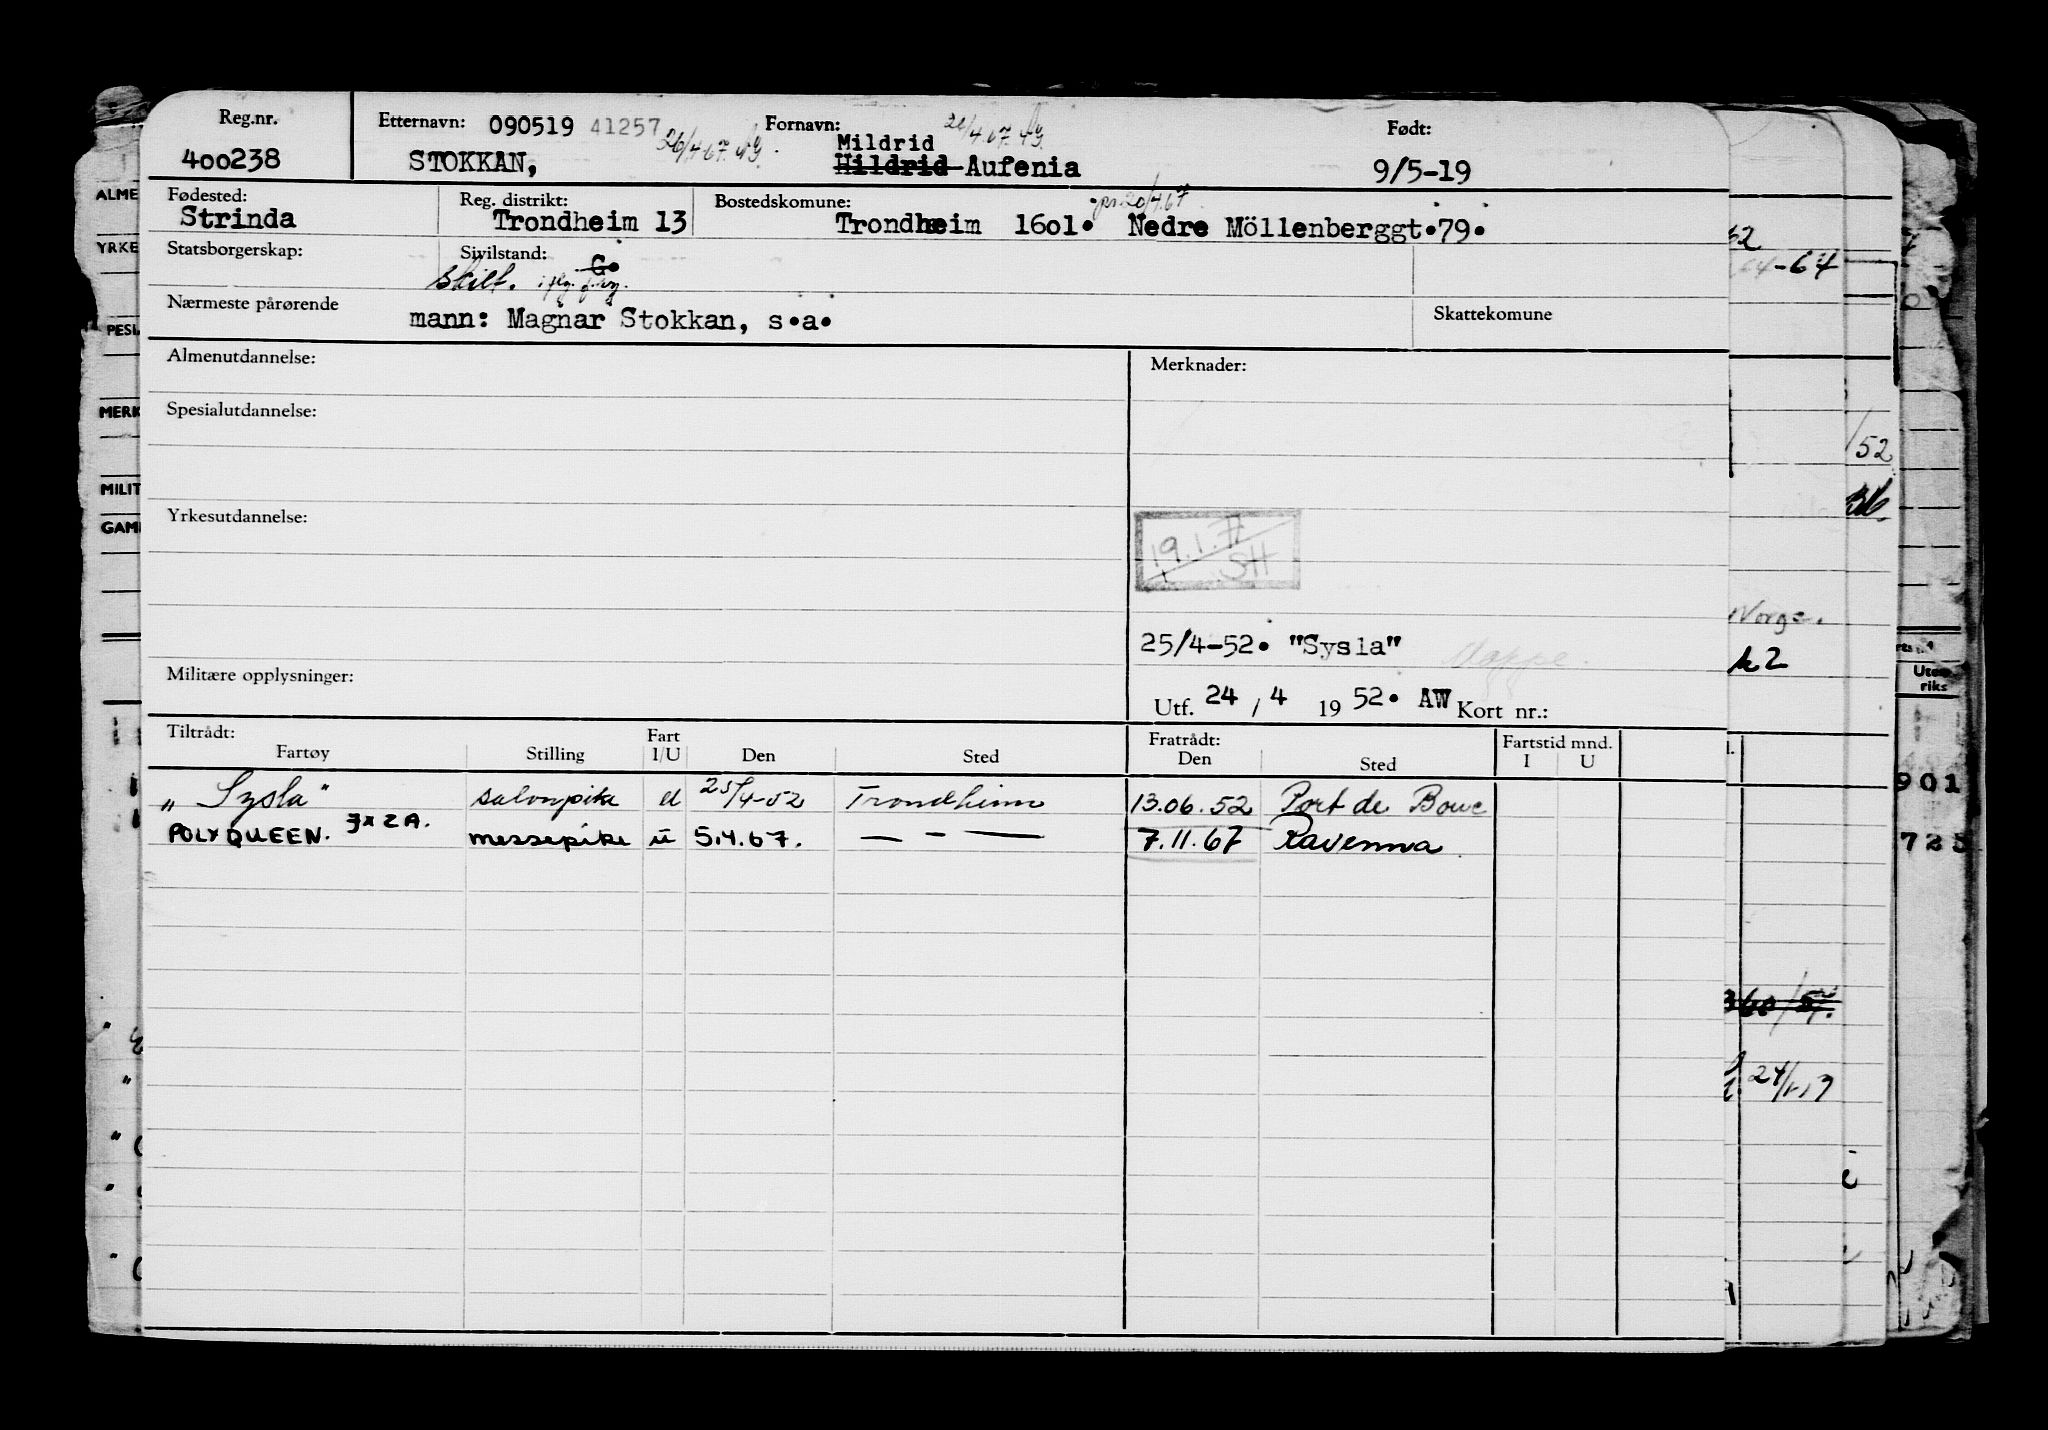 Reg.nr. Etternavn: 090519 41257 26/4.67. Fornavn: Født:
Mildrid
400238 STOKKAN, Hildrid Aufenia 9/5-19
Fødested: Reg. distrikt: Bostedskomune:
Strinda Trondheim 13 Trondheim 1601. Nedre Möllenberggt.79.
Statsborgerskap: Sivilstand: G.
skilt.
Nærmeste pårørende mann: Magnar Stokkan, s.a. Skattekomune
Almenutdannelse: Merknader:
Spesialutdannelse:
Yrkesutdannelse:
19.1.77
SH
25/4-52. "Sysla" Mappe.
Militære opplysninger:
Utf. 24 / 4 19 52. AW Kort nr.:
Tiltrådt: Fratrådt: Fartstid mnd.
Fartøy Stilling Fart I/U Den Sted Den Sted I U
„Sysla" salonpike u 25/4-52 Trondheim 13.06.52 Port de Bouc
POLYQUEEN. messepike u 5.4.67. — - — 7.11.67 Ravenna
ALME
YRKE
PESI
MERK
MILIT
GAM
-64
/52
Norge.
k2
Uten
riks
901
725
360/57.
24/